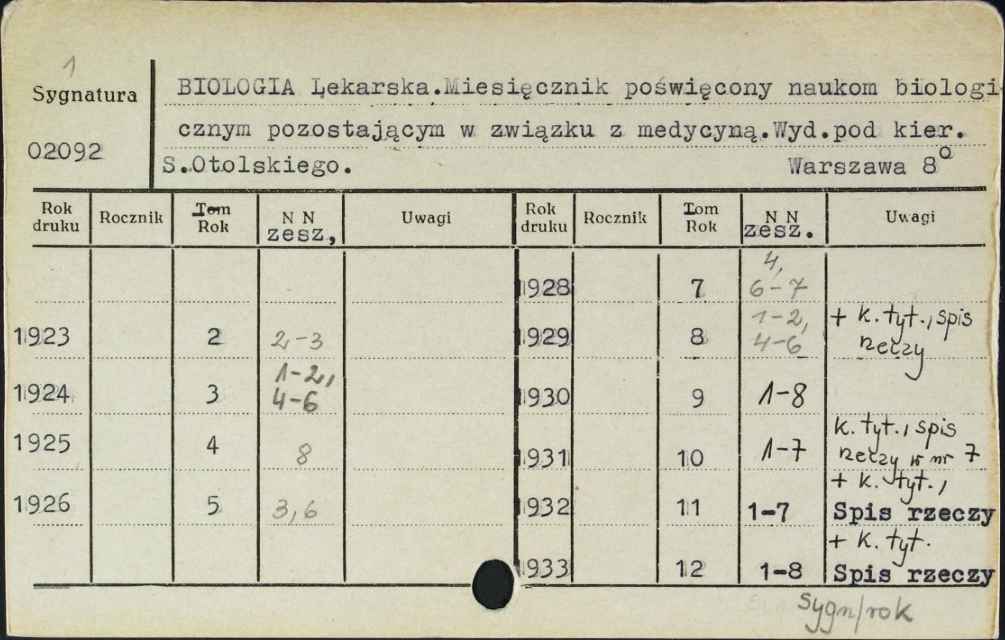 1
Sygnatura
02092
BIOLOGIA Lekarska.Miesięcznik poświęcony naukom biologi
cznym pozostającym w związku z medycyną.Wyd.pod kier.
S.Otolskiego. Warszawa 8°
Rok druku Rocznik Tom Rok NN zesz, Uwagi Rok druku Rocznik Tom Rok NN zesz. Uwagi
1928 7 4, 6-7
1923 2 2,-3 1929 8 1-2, 4-6 + k. tyt., spis rzeczy
1924 3 1-2, 4-6 1930 9 1-8
1925 4 8 1931 10 1-7 k. tyt., spis rzeczy w nr 7
1926 5 3,6 1932 11 1-7 + k. tyt., Spis rzeczy
1933 12 1-8 + k. tyt. Spis rzeczy
Sygn/rok